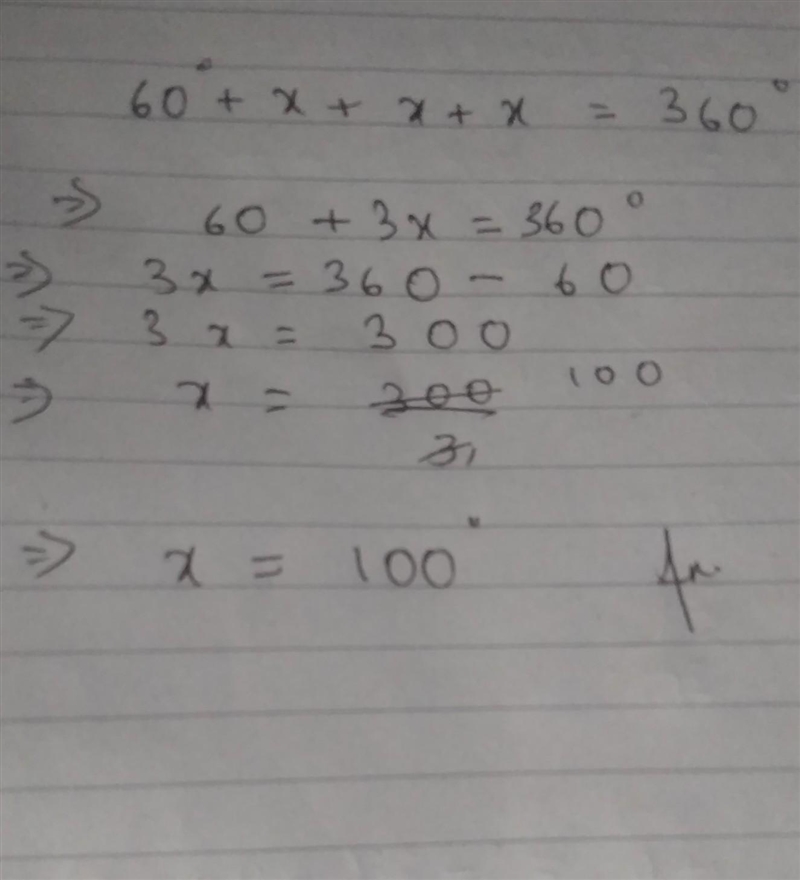 60° + x + x + x = 360°
⇒ 60 + 3x = 360°
⇒ 3x = 360 - 60
⇒ 3x = 300
⇒ x = 300/3 100
⇒ x = 100°